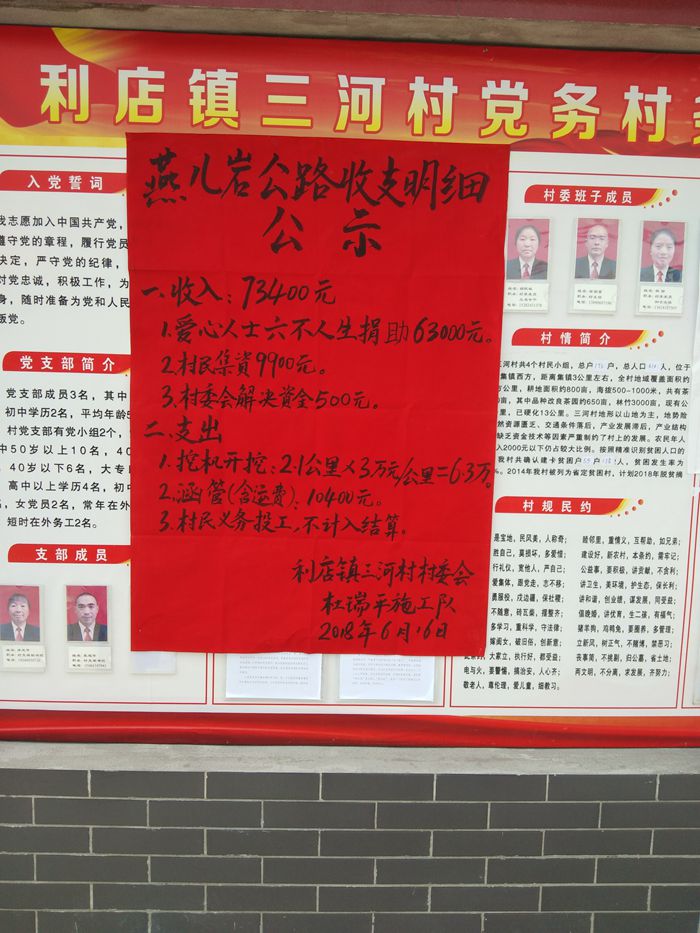 利店镇三河村党务村
入党誓词
我志愿加入中国共产党，
遵守党的章程，履行党员
决定，严守党的纪律，
对党忠诚，积极工作，为
身，随时准备为党和人民
叛党。
党支部简介
党支部成员3名，其中
初中学历2名，平均年龄5
村党支部有党小组2个，
中50岁以上10名，40
40岁以下6名，大专
高中以上学历4名，初
女党员2名，常年在外
短时在外务工2名。
支部成员
燕儿岩公路收支明细
公示
一.收入：73400元
1.爱心人士六不人生捐助63000元。
2.村民集資9900元。
3.村委会解决资金500元。
二.支出
1.挖机开挖：2.1公里×3万元/公里=6.3万。
2.涵管(含运费)：10400元。
3.村民义务投工，不计入结算。
利店镇三河村村委会
杜瑞平施工队
2018年6月16日
村委班子成员
村情简介
三河村共4个村民小组，总户户，总人口人，位于
集镇西方，距离集镇3公里左右，全村地域覆盖面积约
方公里，耕地面积约800亩，海拔500-1000米，共有茶
亩，其中品种改良茶园约650亩，林竹3000亩，现有公
里，已硬化13公里。三河村地形以山地为主，地势险
然资源匮乏、交通条件落后，产业发展滞后，产业结构
缺乏资金技术等因素严重制约了村上的发展。农民年人
入2000元以下仍占较大比例。按照精准识别贫困人口的
我村共确认建卡贫困户户人，贫困发生率为
%。2014年我村被列为省定贫困村，计划2018年脱贫摘
村规民约
是宝地，民风美，人称奇；
胜自己，莫损坏，多爱惜；
行礼仪，宽他人，严自己；
爱集体，跟党走，志不移；
勇服役，戍边疆，保社稷；
不随意，砖瓦柴，摆整齐；
多学习，重科学，守法律；
嫁闺女，破旧俗，创新意；
大家立，执行好，都受益；
电与火，要警惕，搞治安，人心齐；
敬老人，尊伦理，爱儿童，细教习。
睦邻里，重情义，互帮助，如兄弟；
建设好，新农村，本条约，需牢记；
公益事，要积极，讲贡献，不含利；
讲卫生，美环境，护生态，保长利；
讲和谐，创业绩，谋发展，同受益；
倡晚婚，讲优育，生二孩，有福气；
猪羊狗，鸡鸭兔，要圈养，多管理；
立新风，树正气，不赌博，禁恶习；
丧事简，不挑剔，归公墓，省土地；
两文明，不分离，求发展，齐努力；